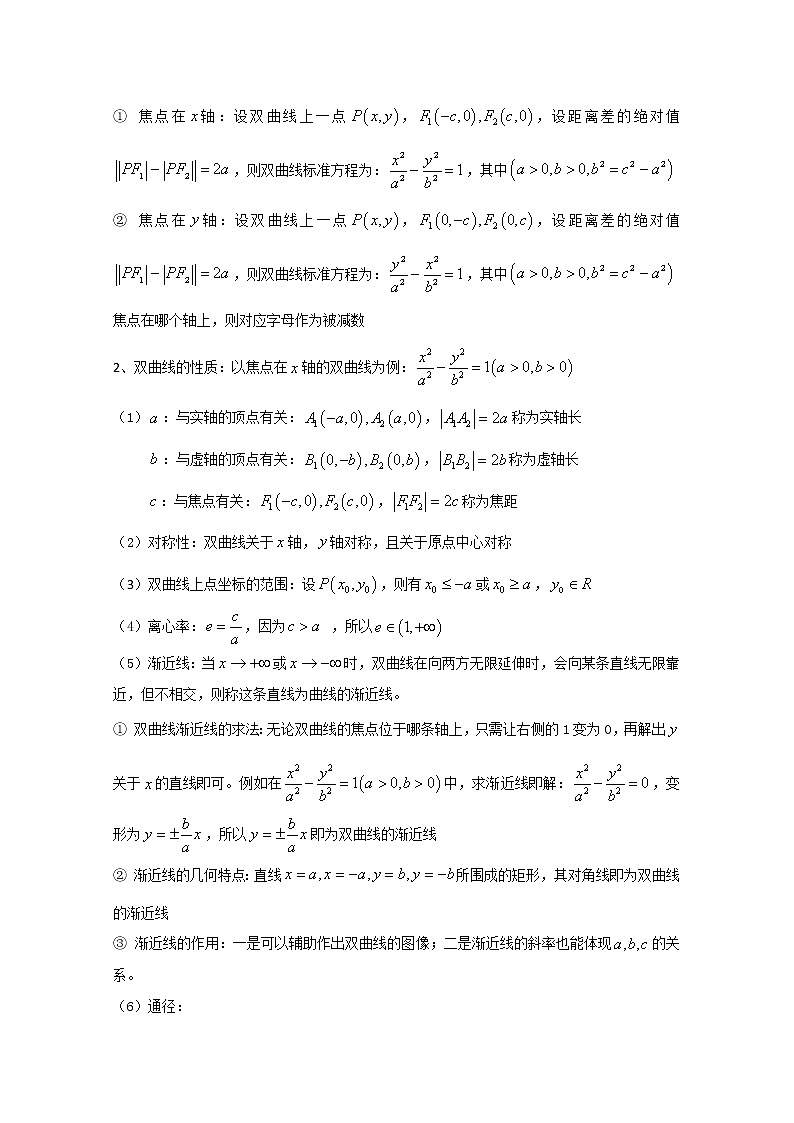 ① 焦点在 x 轴：设双曲线上一点 P(x,y)，F₁(−c,0),F₂(c,0)，设距离差的绝对值
||PF₁|−|PF₂||=2a，则双曲线标准方程为：x²/a²−y²/b²=1，其中(a>0,b>0,b²=c²−a²)
② 焦点在 y 轴：设双曲线上一点 P(x,y)，F₁(0,−c),F₂(0,c)，设距离差的绝对值
||PF₁|−|PF₂||=2a，则双曲线标准方程为：y²/a²−x²/b²=1，其中(a>0,b>0,b²=c²−a²)
焦点在哪个轴上，则对应字母作为被减数
2、双曲线的性质：以焦点在 x 轴的双曲线为例：x²/a²−y²/b²=1(a>0,b>0)
（1）a：与实轴的顶点有关：A₁(−a,0),A₂(a,0)，|A₁A₂|=2a 称为实轴长
b：与虚轴的顶点有关：B₁(0,−b),B₂(0,b)，|B₁B₂|=2b 称为虚轴长
c：与焦点有关：F₁(−c,0),F₂(c,0)，|F₁F₂|=2c 称为焦距
（2）对称性：双曲线关于 x 轴，y 轴对称，且关于原点中心对称
（3）双曲线上点坐标的范围：设 P(x₀,y₀)，则有 x₀≤−a 或 x₀≥a，y₀∈R
（4）离心率：e=c/a，因为 c>a ，所以 e∈(1,+∞)
（5）渐近线：当 x→+∞ 或 x→−∞ 时，双曲线在向两方无限延伸时，会向某条直线无限靠
近，但不相交，则称这条直线为曲线的渐近线。
① 双曲线渐近线的求法：无论双曲线的焦点位于哪条轴上，只需让右侧的 1 变为 0，再解出 y
关于 x 的直线即可。例如在 x²/a²−y²/b²=1(a>0,b>0) 中，求渐近线即解：x²/a²−y²/b²=0，变
形为 y=±b/a x，所以 y=±b/a x 即为双曲线的渐近线
② 渐近线的几何特点：直线 x=a,x=−a,y=b,y=−b 所围成的矩形，其对角线即为双曲线
的渐近线
③ 渐近线的作用：一是可以辅助作出双曲线的图像；二是渐近线的斜率也能体现 a,b,c 的关
系。
（6）通径：